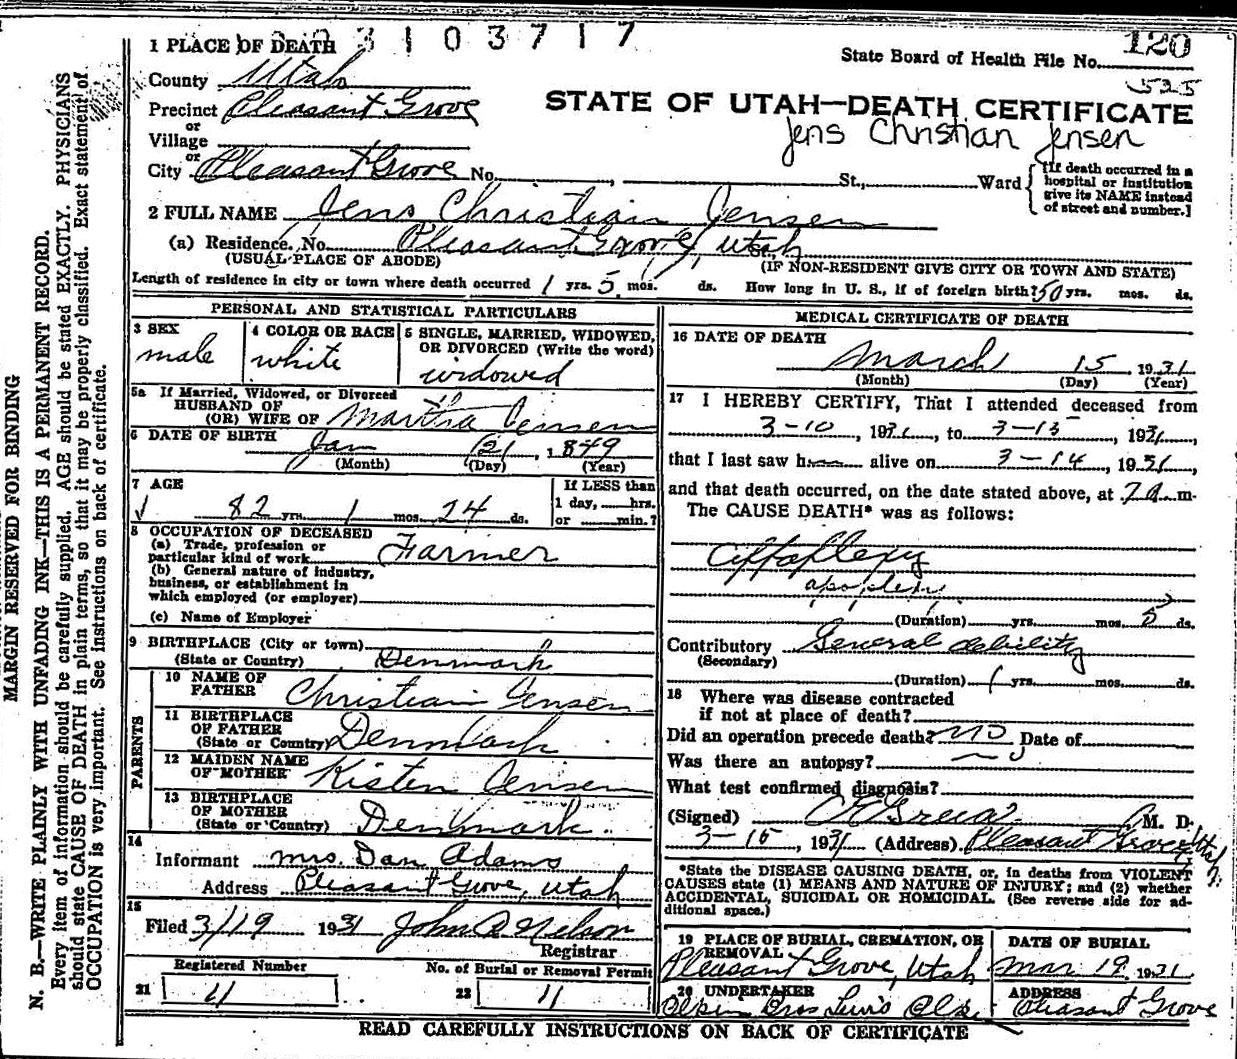 3103717
120
State Board of Health File No.
525
STATE OF UTAH—DEATH CERTIFICATE
Jens Christian Jensen
1 PLACE OF DEATH
County Utah
Precinct Pleasant Grove
or
Village
or
City Pleasant Grove No. , St., Ward
[If death occurred in a hospital or institution give its NAME instead of street and number.]
2 FULL NAME Jens Christian Jensen
(a) Residence. No. Pleasant Grove, Utah
(USUAL PLACE OF ABODE) (IF NON-RESIDENT GIVE CITY OR TOWN AND STATE)
Length of residence in city or town where death occurred 1 yrs. 5 mos. ds. How long in U. S., if of foreign birth? 50 yrs. mos. ds.
PERSONAL AND STATISTICAL PARTICULARS
3 SEX
male
4 COLOR OR RACE
white
5 SINGLE, MARRIED, WIDOWED,
OR DIVORCED (Write the word)
widowed
5a If Married, Widowed, or Divorced
HUSBAND OF
(OR) WIFE OF Martha Jensen
6 DATE OF BIRTH
Jan 21, 1849
(Month) (Day) (Year)
7 AGE
82 yrs. 1 mos. 24 ds.
If LESS than
1 day, hrs.
or min.?
8 OCCUPATION OF DECEASED
(a) Trade, profession or
particular kind of work Farmer
(b) General nature of industry,
business, or establishment in
which employed (or employer)
(c) Name of Employer
9 BIRTHPLACE (City or town)
(State or Country) Denmark
PARENTS
10 NAME OF
FATHER Christian Jensen
11 BIRTHPLACE
OF FATHER
(State or Country) Denmark
12 MAIDEN NAME
OF MOTHER Kisten Jensen
13 BIRTHPLACE
OF MOTHER
(State or Country) Denmark.
14
Informant Mrs. Dan Adams
Address Pleasant Grove, Utah
15
Filed 3/19 1931 John Nelson
Registrar
Registered Number
21 11
No. of Burial or Removal Permit
22 11
MEDICAL CERTIFICATE OF DEATH
16 DATE OF DEATH
March 15 1931
(Month) (Day) (Year)
17 I HEREBY CERTIFY, That I attended deceased from
3-10, 1931, to 3-15, 1931,
that I last saw h alive on 3-14, 1931,
and that death occurred, on the date stated above, at 7 a m.
The CAUSE DEATH* was as follows:
apoplexy
(Duration) yrs. mos. 5 ds.
Contributory General debility
(Secondary)
(Duration) 1 yrs. mos. ds.
18 Where was disease contracted
if not at place of death?
Did an operation precede death? no Date of
Was there an autopsy?
What test confirmed diagnosis?
(Signed) M. D.
3-15, 1931 (Address) Pleasant Grove Utah
*State the DISEASE CAUSING DEATH, or, in deaths from VIOLENT
CAUSES state (1) MEANS AND NATURE OF INJURY; and (2) whether
ACCIDENTAL, SUICIDAL OR HOMICIDAL. (See reverse side for ad-
ditional space.)
19 PLACE OF BURIAL, CREMATION, OR
REMOVAL
Pleasant Grove, Utah
DATE OF BURIAL
Mar 19 1931
20 UNDERTAKER
Olpin Bros
ADDRESS
Pleasant Grove
READ CAREFULLY INSTRUCTIONS ON BACK OF CERTIFICATE
MARGIN RESERVED FOR BINDING
N. B.—WRITE PLAINLY WITH UNFADING INK—THIS IS A PERMANENT RECORD.
Every item of information should be carefully supplied. AGE should be stated EXACTLY. PHYSICIANS
should state CAUSE OF DEATH in plain terms, so that it may be properly classified. Exact statement of
OCCUPATION is very important. See instructions on back of certificate.